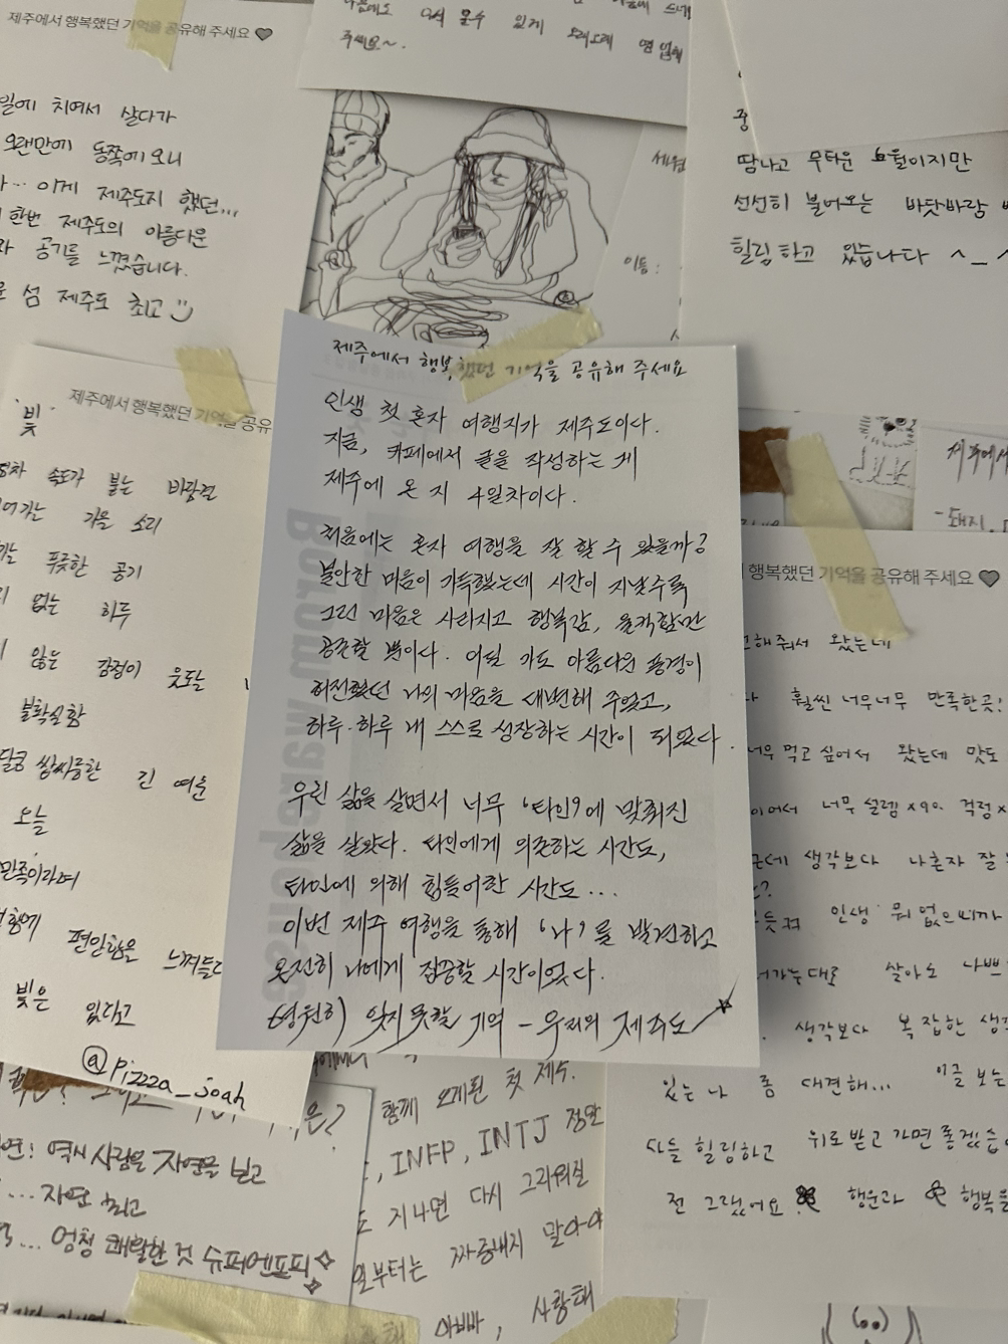 제주에서 행복했던 기억을 공유해 주세요
일에 치여서 살다가
오랜만에 동쪽에 오니
이게 제주도지 했던...
한번 제주도의 아름다운
공기를 느꼈습니다.
섬 제주도 최고
다시 올 수 있게 오래오래 영업해
주세요~.
세원
이름 :
중
땀나고 무더운 8월이지만
선선히 불어오는 바닷바람
힐링하고 있습니다 ^_^
제주에서 행복했던 기억을 공유해 주세요
인생 첫 혼자 여행지가 제주도이다.
지금, 카페에서 글을 작성하는 게
제주에 온 지 4일차이다.
처음에는 혼자 여행을 잘 할 수 있을까?
불안한 마음이 가득했는데 시간이 지날수록
그런 마음은 사라지고 행복감, 울컥함만
공존할 뿐이다. 어딜 가도 아름다운 풍경이
허전했던 나의 마음을 대변해 주었고,
하루·하루 내 스스로 성장하는 시간이 되었다.
우린 삶을 살면서 너무 '타인'에 맞춰진
삶을 살았다. 타인에게 의존하는 시간도,
타인에 의해 힘들어한 시간도...
이번 제주 여행을 통해 '나'를 발견하고
온전히 나에게 집중할 시간이었다.
영원히) 잊지 못할 기억 - 우리의 제주도
제주에서 행복했던 기억을 공유
빛
속도가 붙는 바람결
가을 소리
푸릇한 공기
없는 하루
않는 감정이 웃도는
불확실함
쌉싸름한 긴 여운
오늘
만족이라며
편안함을 느껴든다
빛은 있다고
@pizzza_joah
제주에서
- 돼지
행복했던 기억을 공유해 주세요
해줘서 왔는데
훨씬 너무너무 만족한곳!
먹고 싶어서 왔는데 맛도
너무 설렘 x 90. 걱정 x
근데 생각보다 나혼자 잘
인생 뭐 없으니까
살아도 나쁘
생각보다 복잡한 생각
있는 나 좀 대견해... 이글 보는
힐링하고 위로받고 가면 좋겠습
전 그랬어요 행운과 행복을
역시 사람은 자연을 보고
... 자연 최고
... 엄청 쾌활한 것 슈퍼엔프피
함께 오게된 첫 제주.
, INFP, INTJ 정말
지나면 다시 그리워질
일부터는 짜증내지 말아야
아빠, 사랑해